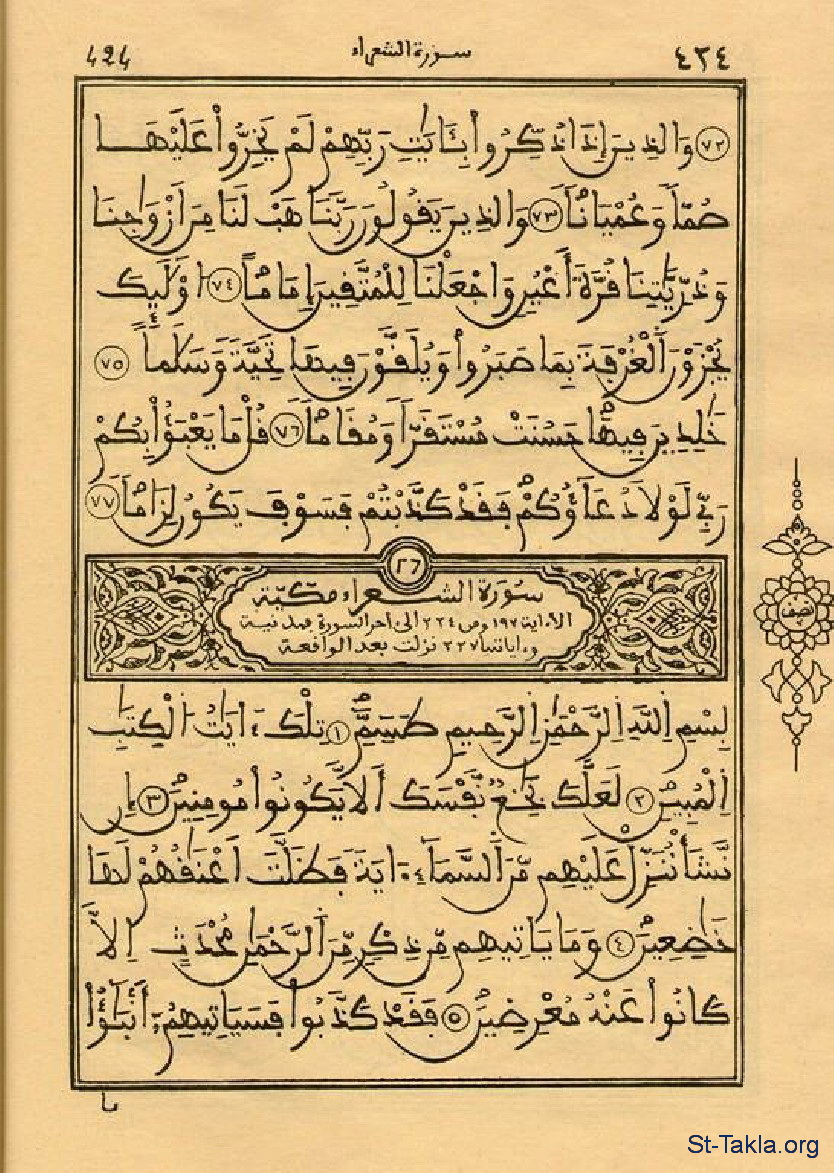 424 سورة الشعراء ٤٢٤
٧٢ وَالذِينَ إِذَا ذُكِّرُواْ بِـَٔايَٰتِ رَبِّهِمْ لَمْ يَخِرُّواْ عَلَيْهَا
صُمّاً وَعُمْيَاناً ٧٣ وَالذِينَ يَقُولُونَ رَبَّنَا هَبْ لَنَا مِنَ اَزْوَٰجِنَا
وَذُرِّيَّٰتِنَا قُرَّةَ أَعْيُنٍ وَاجْعَلْنَا لِلْمُتَّقِينَ إِمَاماً ٧٤ اوْلَٰٓئِكَ
يُجْزَوْنَ اَلْغُرْفَةَ بِمَا صَبَرُواْ وَيُلَقَّوْنَ فِيهَا تَحِيَّةً وَسَلَٰماً ٧٥
خَٰلِدِينَ فِيهَا حَسُنَتْ مُسْتَقَرّاً وَمُقَاماً ٧٦ قُلْ مَا يَعْبَؤُاْ بِكُمْ
رَبِّي لَوْلاَ دُعَآؤُكُمْ فَقَدْ كَذَّبْتُمْ فَسَوْفَ يَكُونُ لِزَاماً ٧٧
٢٦
سُورَةُ الشعراء مكية
الا ءاية ١٩٧ ومن ٢٢٤ الى اخر السورة فمدنية
وءاياتها ٢٢٧ نزلت بعد الواقعة
نصف
بِسْمِ اِللَّهِ اِلرَّحْمَٰنِ اِلرَّحِيمِ طَسِمِّٓ ١ تِلْكَ ءَايَٰتُ الْكِتَٰبِ
اِلْمُبِينِ ٢ لَعَلَّكَ بَٰخِعٌ نَّفْسَكَ أَلاَّ يَكُونُواْ مُومِنِينَ ٣ إِن
نَّشَأْ نُنَزِّلْ عَلَيْهِم مِّنَ اَلسَّمَآءِ ءَايَةً فَظَلَّتَ اَعْنَٰقُهُمْ لَهَا
خَٰضِعِينَ ٤ وَمَا يَاتِيهِم مِّن ذِكْرٍ مِّنَ اَلرَّحْمَٰنِ مُحْدَثٍ اِلاَّ
كَانُواْ عَنْهُ مُعْرِضِينَ ٥ فَقَدْ كَذَّبُواْ فَسَيَاتِيهِمُ أَنۢبَٰٓؤُاْ
ما
St-Takla.org